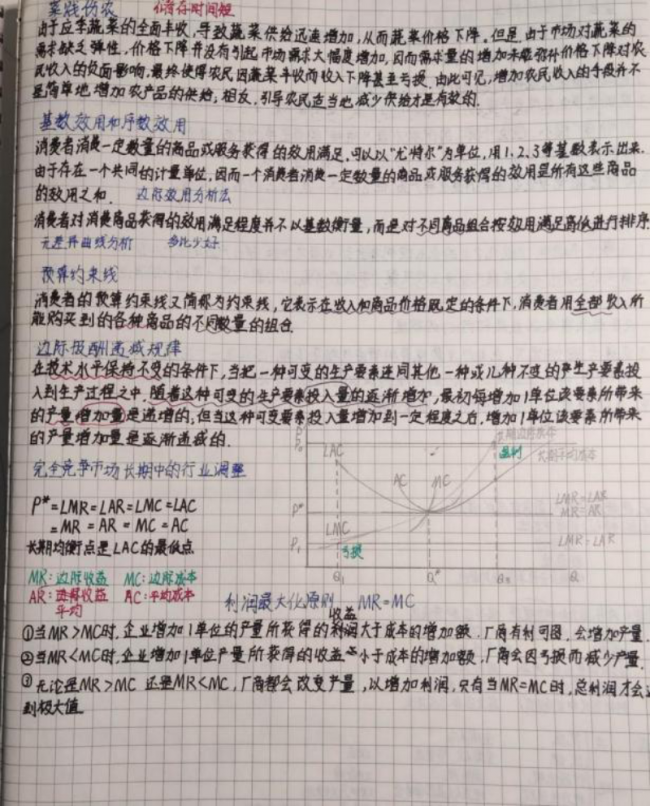 菜贱伤农 储存时间短
由于应季蔬菜的全面丰收，导致蔬菜供给迅速增加，从而蔬菜价格下降。但是，由于市场对蔬菜的
需求缺乏弹性，价格下降并没有引起市场需求大幅度增加，因而需求量的增加未能弥补价格下降对农
民收入的负面影响，最终使得农民因蔬菜丰收而收入下降甚至亏损。由此可见，增加农民收入的手段并不
是简单地增加农产品的供给，相反，引导农民适当地减少供给才是有效的。
基数效用和序数效用
消费者消费一定数量的商品或服务获得的效用满足，可以以“尤特尔”为单位，用1、2、3等基数表示出来。
由于存在一个共同的计量单位，因而一个消费者消费一定数量的商品或服务获得的效用是所有这些商品
的效用之和。 边际效用分析法
消费者对消费商品获得的效用满足程度并不以基数衡量，而是对不同商品组合按效用满足高低进行排序
无差异曲线分析 多比少好
预算约束线
消费者的预算约束线又简称为约束线，它表示在收入和商品价格既定的条件下，消费者用全部收入所
能购买到的各种商品的不同数量的组合。
边际报酬递减规律
在技术水平保持不变的条件下，当把一种可变的生产要素连同其他一种或几种不变的生产要素投
入到生产过程之中，随着这种可变的生产要素投入量的逐渐增加，最初每增加1单位该要素所带来
的产量增加量是递增的，但当这种可变要素投入量增加到一定程度之后，增加1单位该要素所带来
的产量增加量是逐渐递减的。
完全竞争市场长期中的行业调整
P*=LMR=LAR=LMC=LAC
=MR=AR=MC=AC
长期均衡点是LAC的最低点
MR：边际收益 MC：边际成本
AR：平均收益 AC：平均成本
LAC AC MC 盈利 长期平均成本
P* LMR=LAR
MR=AR
LMC
P₁ 亏损 LMR=LAR
Q₁ Q* Q₂ Q
利润最大化原则 MR=MC
①当MR>MC时，企业增加1单位的产量所获得的收益大于成本的增加额，厂商有利可图，会增加产量
②当MR<MC时，企业增加1单位产量所获得的收益小于成本的增加额，厂商会因亏损而减少产量
③无论是MR>MC还是MR<MC，厂商都会改变产量，以增加利润，只有当MR=MC时，总利润才会达
到极大值